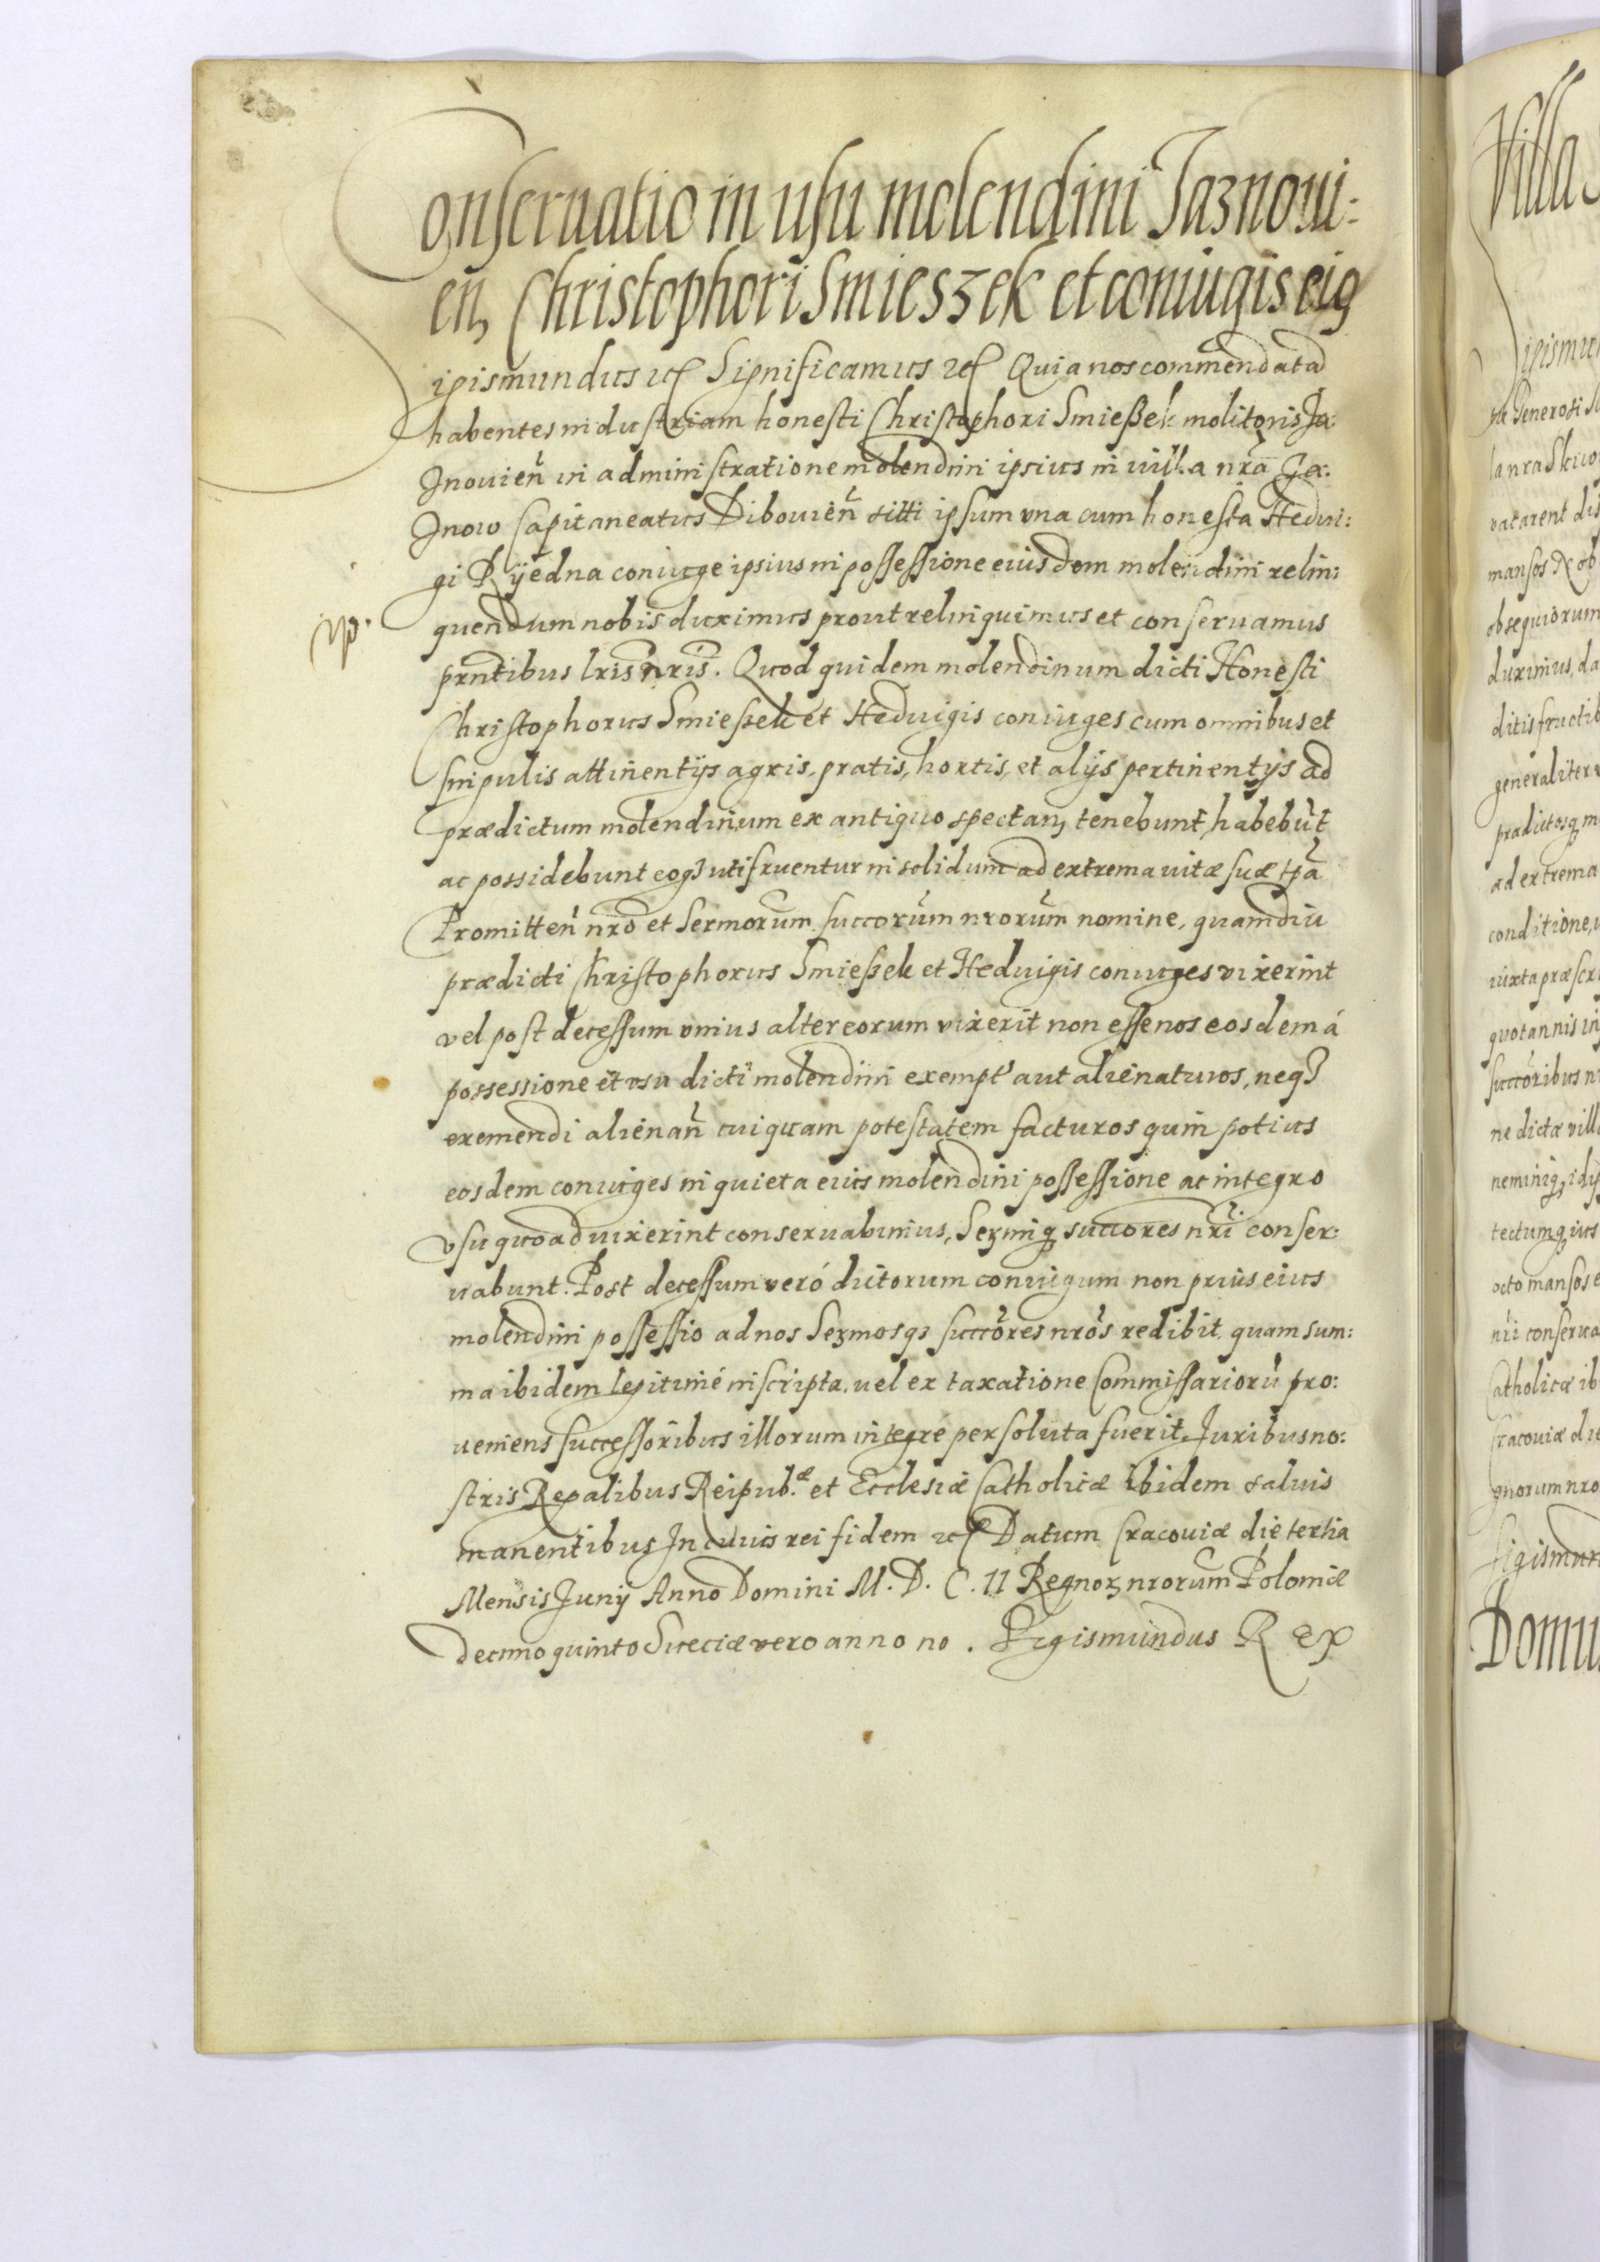 Conservatio in usu molendini Jaznovi:
en̄, Christophori Smieszek et coniugis eiꝯ
Sigismundus ꝛcꝭ Significamus ꝛcꝭ Quia nos commendatā
habentes industriam honesti Christophori Smießek molitoris Ja:
znovien̄ in administratione molendini ipsius in villa nr̄a Ja:
znow Capitaneatus Dibovien̄ sitti ipsum vna cum honesta Hedui:
gi coniuge ipsius in possessione eiusdem molendini relin:
quendum nobis duximus prout relinquimus et conservamus
prn̄tibus lris nris. Quod quidem molendinum dicti Honesti
Christophorus Smießek et Heduigis coniuges cum omnibus et
singulis attinentijs agris, pratis, hortis, et alijs pertinentijs ad
prædictum molendinum ex antiquo spectan̄, tenebunt, habebūt
ac possidebunt eoqꝫ utifruentur in solidum ad extrema vitæ suæ tp̄a
Promitten̄ nr̄o et Sermorum succorum nrorum nomine, quamdiu
prædicti Christophorus Smießek et Heduigis coniuges vixerint
vel post decessum vnius alter eorum vixerit non esse nos eosdem á
possessione et vsu dicti molendini exempt' aut alienaturos, neqꝫ
eximendi alienan̄ cuiquam potestatem facturos quin potius
eosdem coniuges in quieta eius molendini possessione ac integro
vsu quoad vixerint conservabimus, Serm̄iqꝫ succores nr̄i conser:
vabunt. Post decessum veró dictorum coniugum non prius eius
molendini possessio ad nos Sermosqꝫ succores nros redibit, quam sum:
ma ibidem legitimé inscripta, vel ex taxatione Commissariorū pro:
veniens successoribus illorum integre persoluta fuerit, Juribus no:
stris Regalibus Reipub.æ et Ecclesiæ Catholicæ ibidem salvis
manentibus In cuius rei fidem ꝛcꝭ Datum Cracoviæ die tertia
Mensis Junij Anno Domini M. D. C. II Regnorꝫ nrorum Poloniæ
decimo quinto Sueciæ vero anno no. Sigismundus Rex
Villa
Sigismu
Generosi
la nra
vacarent dis
mansos
obsequiorum
duximus, da
ditis fructib
generaliter v
prædictosqꝫ m
ad extrema
conditione, v
iuxta præscri
quotannis in
succoribus n
ne dictæ villa
tectumqꝫ ius
octo mansos e
nr̄i conserva
Catholicæ ib
Cracoviæ die
gnorum nro
Sigismun
Domu